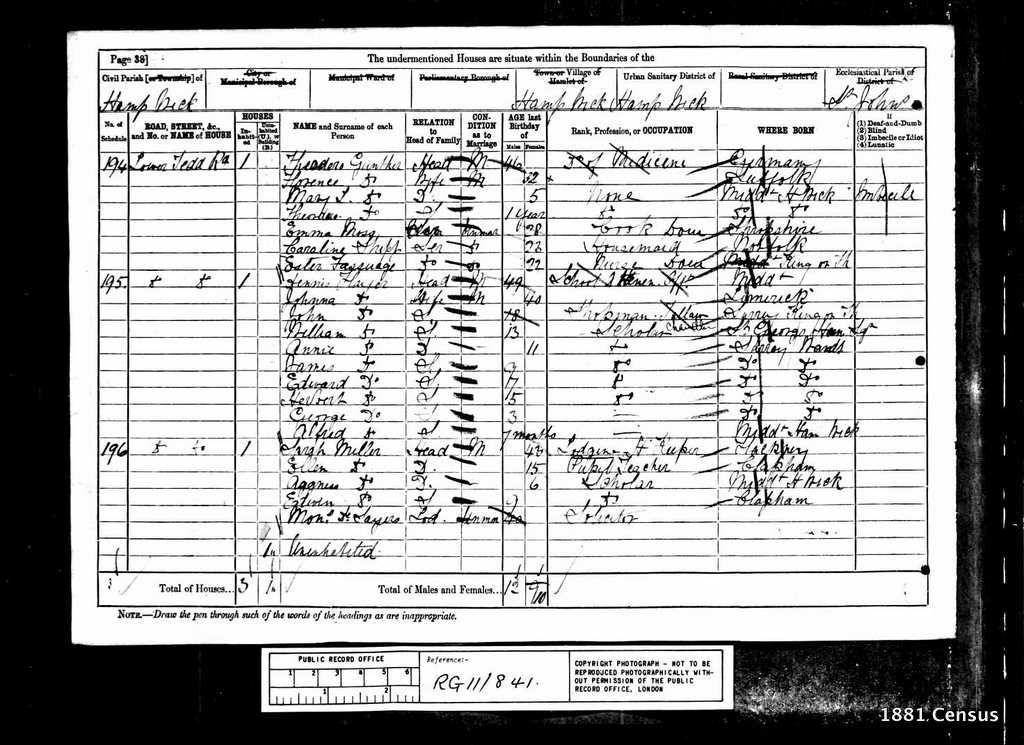 Page 38]
The undermentioned Houses are situate within the Boundaries of the
Civil Parish [or Township] of
City or Municipal Borough of
Municipal Ward of
Parliamentary Borough of
Town or Village or Hamlet of
Urban Sanitary District of
Rural Sanitary District of
Ecclesiastical Parish or District of
Hamp Wick
Hamp Wick
Hamp Wick
St Johns
No. of Schedule
ROAD, STREET, &c., and No. or NAME of HOUSE
HOUSES
Inhabited
Uninhabited (U.), or Building (B.)
NAME and Surname of each Person
RELATION to Head of Family
CONDITION as to Marriage
AGE last Birthday of
Males
Females
Rank, Profession, or OCCUPATION
WHERE BORN
If
(1) Deaf-and-Dumb
(2) Blind
(3) Imbecile or Idiot
(4) Lunatic
194 Lower Tedd Rd 1 Theodore Gunther Head M 46 Medicine Germany
Florence Do Wife M 32 Suffolk
Mary L. Do D. 5 None Middx H Wick Imbecile
Do 1 year Do Do Do
Emma Moss Unmar 28 Cook Dom Shropshire
Caroline Ser Do 23 Housemaid Norfolk
Ester Do Do 22 Nurse Dom Middx King on Th
195. Do Do 1 Head M 49 School Middx
Johnna Do Wife M 40 Limerick
John Do 18 Shopman Tallow Chandler Surrey King on Th
William Do 13 Scholar St George Han Sq
Annie Do 11 Do Surrey
James Do 9 Do Do Do
Edward Do 7 Do Do Do
Herbert Do 5 Do Do Do
George Do 3 Do Do
Alfred Do 7 months Middx Ham Wick
196 Do Do 1 Sarah Miller Head M 43 Lodging H Keeper Hackney
Ellen Do D. 15 Pupil Teacher Clapham
Aggness Do D. 6 Scholar Middx H Wick
Edwin Do 9 Do Clapham
Lod. Unmar 40 Solicitor
1u Uninhabited
3 Total of Houses... 3 1u Total of Males and Females... 12 10
NOTE.—Draw the pen through such of the words of the headings as are inappropriate.
PUBLIC RECORD OFFICE
1 2 3 4 5 6
1 2
Reference:-
RG 11/841.
COPYRIGHT PHOTOGRAPH - NOT TO BE
REPRODUCED PHOTOGRAPHICALLY WITH-
OUT PERMISSION OF THE PUBLIC
RECORD OFFICE, LONDON
1881 Census